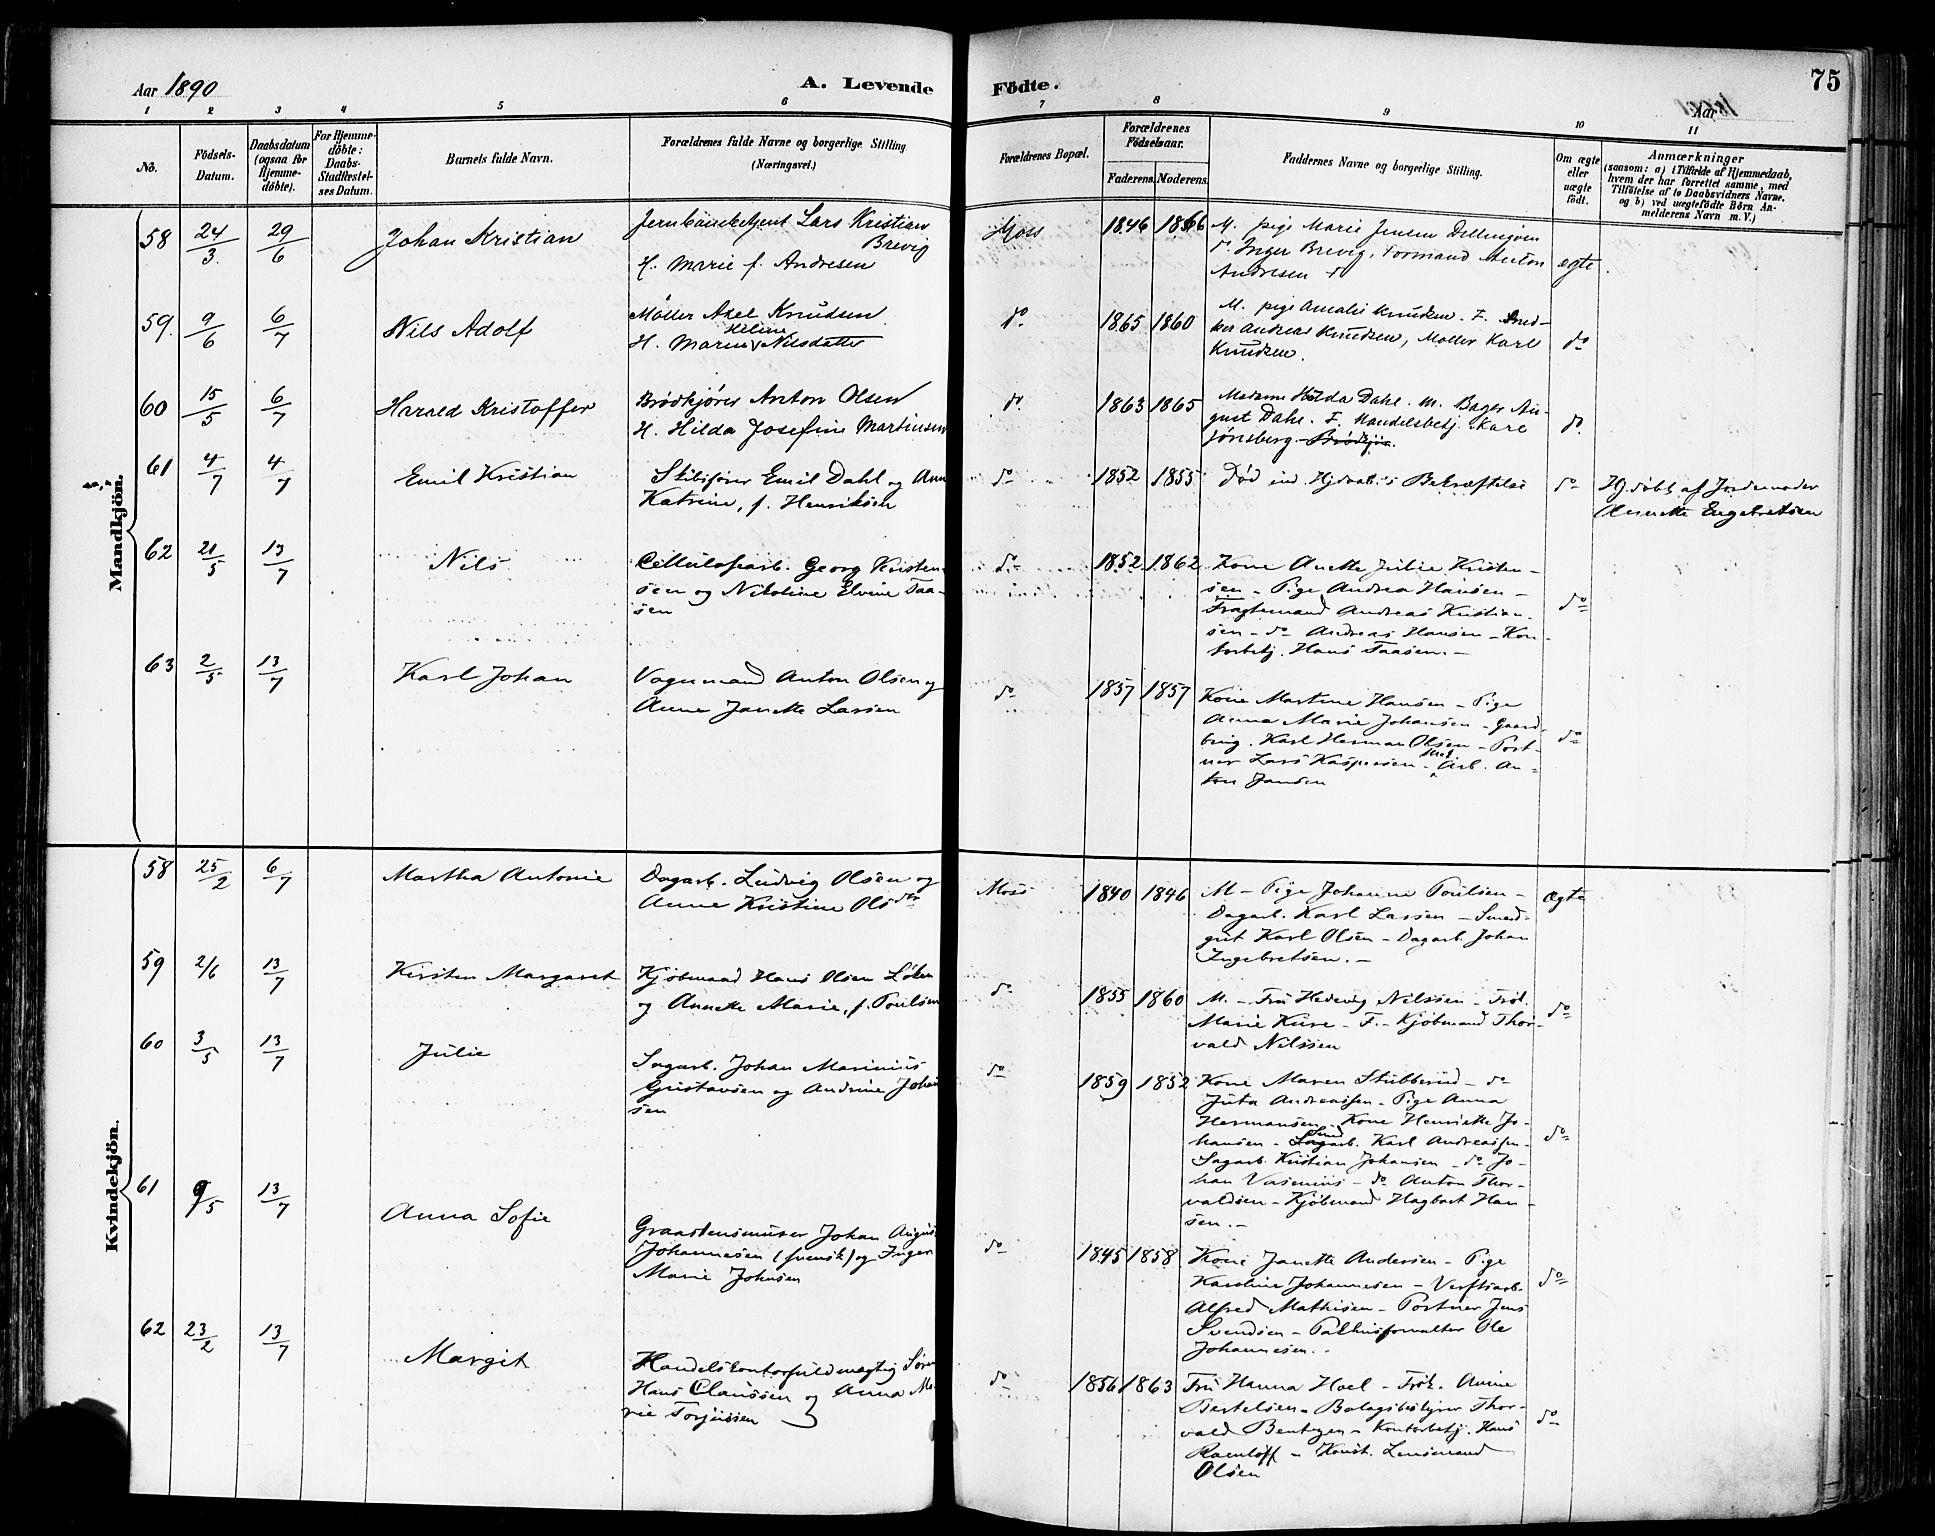 Aar 1890
A. Levende
Födte.
75
1 2 3 4 5 6 7 8 9 10 11
No.
Födsels-Datum.
Daabsdatum (ogsaa for Hjemme-döbte).
For Hjemme-döbte: Daabs-Stadfæstel-ses Datum.
Barnets fulde Navn.
Forældrenes fulde Navne og borgerlige Stilling. (Næringsvei.)
Forældrenes Bopæl.
Forældrenes Födselsaar.
Faderens. Moderens.
Faddernes Navne og borgerlige Stilling.
Om ægte eller uægte födt.
Anmærkninger
(saasom: a) i Tilfælde af Hjemmedaab,
hvem der har forrettet samme, med
Tilföielse af to Daabsvidners Navne.
og b) ved uægtefödte Börn An-
melderens Navn m. V.)
Mandkjön.
58 24/3 29/6 Johan Kristian
Jernbanebetjent Lars Kristian
Brevig
H. Marie f. Andresen
Moss 1846 1866
M. pige Marie Jensen
do Inger Brevig, Formand Anton
Andresen
ægte
59. 9/6 6/7 Nils Adolf
Möller Axel Knudsen
H. Marie Helene Nilsdatter
do 1865 1860
M. pige Amalie Knudsen. F. Smed-
Andreas Knudsen, Möller Karl
Knudsen.
do
60 15/5 6/7 Harald Kristoffer
Brödkjörer Anton Olsen
H. Hilda Josefine Martinsen
do 1863 1865
Madame Hilda Dahl. M. Bager Au-
gust Dahl. F. Handelsbetj. Karl
Jönsberg.
do
61 4/7 4/7 Emil Kristian
Skibsförer Emil Dahl og Ann
Katrine, f. Henriksen
do 1852 1855
Död ind. Hjdaab.s Bekræftelse
do
Hj.döbt af Jordemoder
Annette Engebretsen
62 21/5 13/7 Nils
Cellulosearb. Georg Kristen-
sen og Nikoline Elvine Taa-
sen
do 1852 1862
Kone Anette Julie Kristen-
sen - Pige Andrea Hansen -
Fragtemand Andreas Kristian-
sen - do Andreas Hansen - Kon-
torbetj. Hans Taasen. -
do
63 2/5 13/7 Karl Johan
Vognmand Anton Olsen og
Anne Janette Larsen
do 1857 1857
Kone Martine Hansen - Pige
Anna Marie Johansen - Gaard-
brug. Karl Herman Olsen - Port-
ner Lars Kaspersen - Arb. An-
ton Jansen
do
Kvindekjön.
58 25/2 6/7 Martha Antonie
Dagarb. Ludvig Olsen og
Anne Kristine Olsdtr
Moss 1840 1846
M - Pige Johanne Poulsen -
Dagarb. Karl Larsen - Smed-
gut Karl Olsen - Dagarb. Johan
Ingebretsen. -
Ægte
59 2/6 13/7 Kirsten Margaret
Kjöbmand Hans Olsen Löken
og Annette Marie, f. Poulsen
do 1855 1860
M. - Fru Hedevig Nilssen - Frök.
Marie Kure - F. - Kjöbmand Thor-
vald Nilssen
do
60 3/5 13/7 Julie
Sagarb. Johan Marinius
Gustavsen og Andrine Johan
sen
do 1859 1852
Kone Maren Stubberud - do
Juta Andreassen - Pige Anna
Hermansen - Kone Henriette Jo-
hansen - Karl Andreassen -
Sagarb. Kristian Johansen - do Jo-
han - do Anton Thor-
valdsen - Kjöbmand Hagbart Han-
sen. -
do
61 9/5 13/7 Anna Sofie
Graastensmurer Johan August
Johannesen (svensk) og Inger
Marie Johnsen
do 1845 1858
Kone Janette Andersen - Pige
Karoline Johannesen - Verftsarb.
Alfred Mathisen - Portner Jens
Svendsen - Pakhusforvalter Ole
Johannesen.
do
62 23/2 13/7 Margit
Handelskontorfuldmægtig Sören
Hans Claussen og Anna Ma-
rie Torjussen
do 1856 1863
Fru Hanna Hoel - Frök. Anine
Bertelsen - Bolagsbestyrer Thor-
vald Bentzen - Kontorbetj. Hans
Ramloff - Konst. Lensmand
Olsen
do